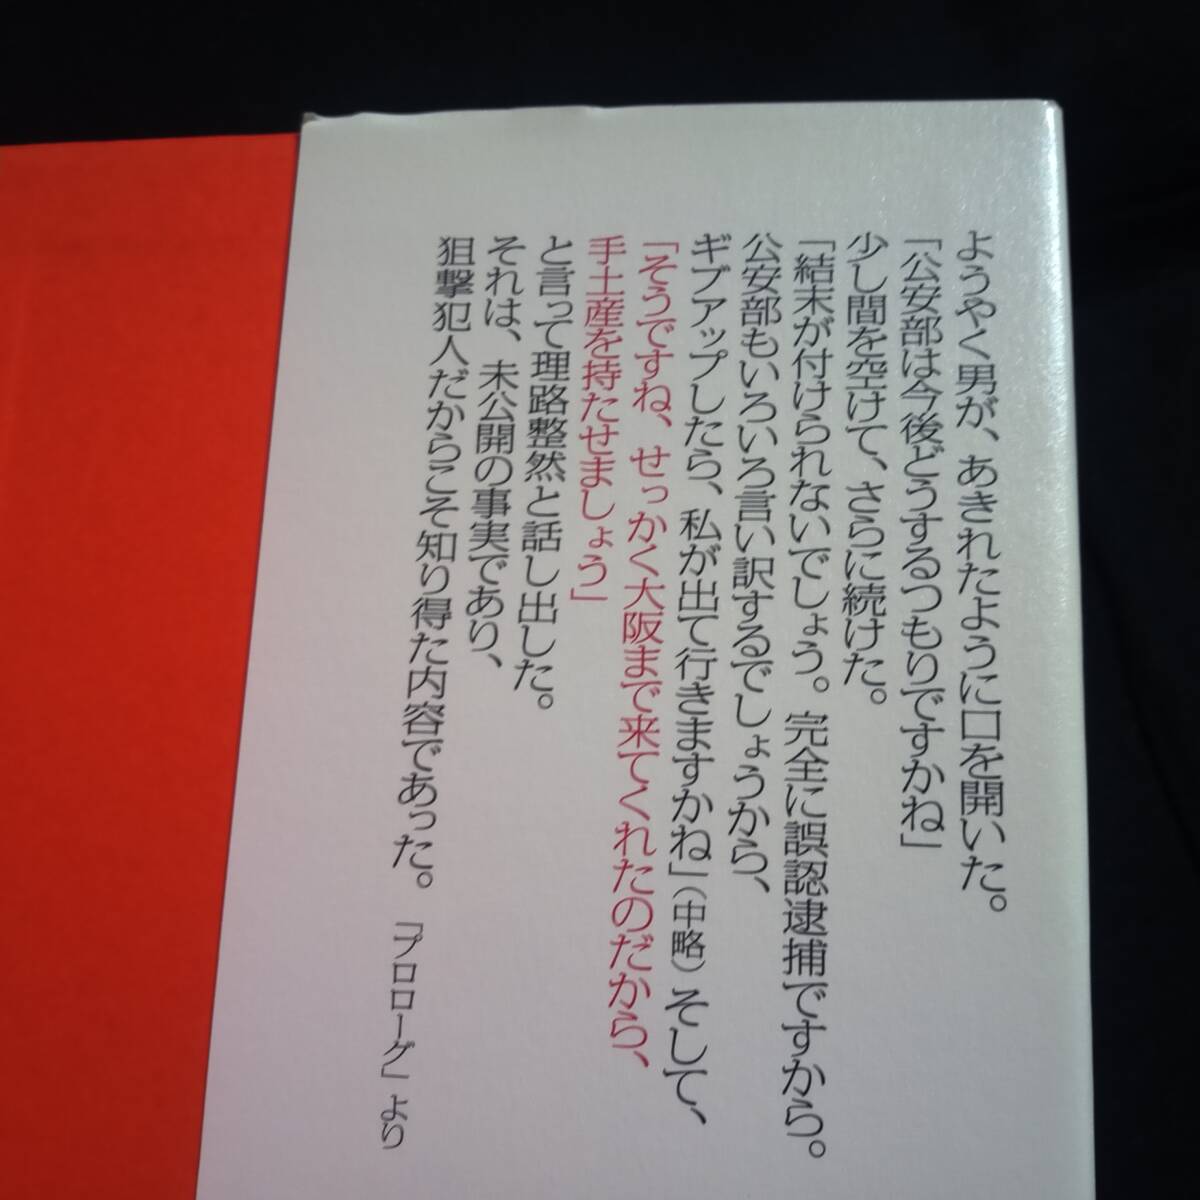 ようやく男が、あきれたように口を開いた。
「公安部は今後どうするつもりですかね」
少し間を空けて、さらに続けた。
「結末が付けられないでしょう。完全に誤認逮捕ですから。
公安部もいろいろ言い訳するでしょうから、
ギブアップしたら、私が出て行きますかね」（中略）そして、
「そうですね、せっかく大阪まで来てくれたのだから、
手土産を持たせましょう」
と言って理路整然と話し出した。
それは、未公開の事実であり、
狙撃犯人だからこそ知り得た内容であった。「プロローグ」より